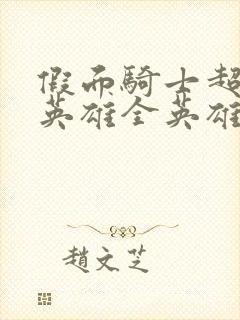 假面騎士超
英雄全英雄
趙文芝